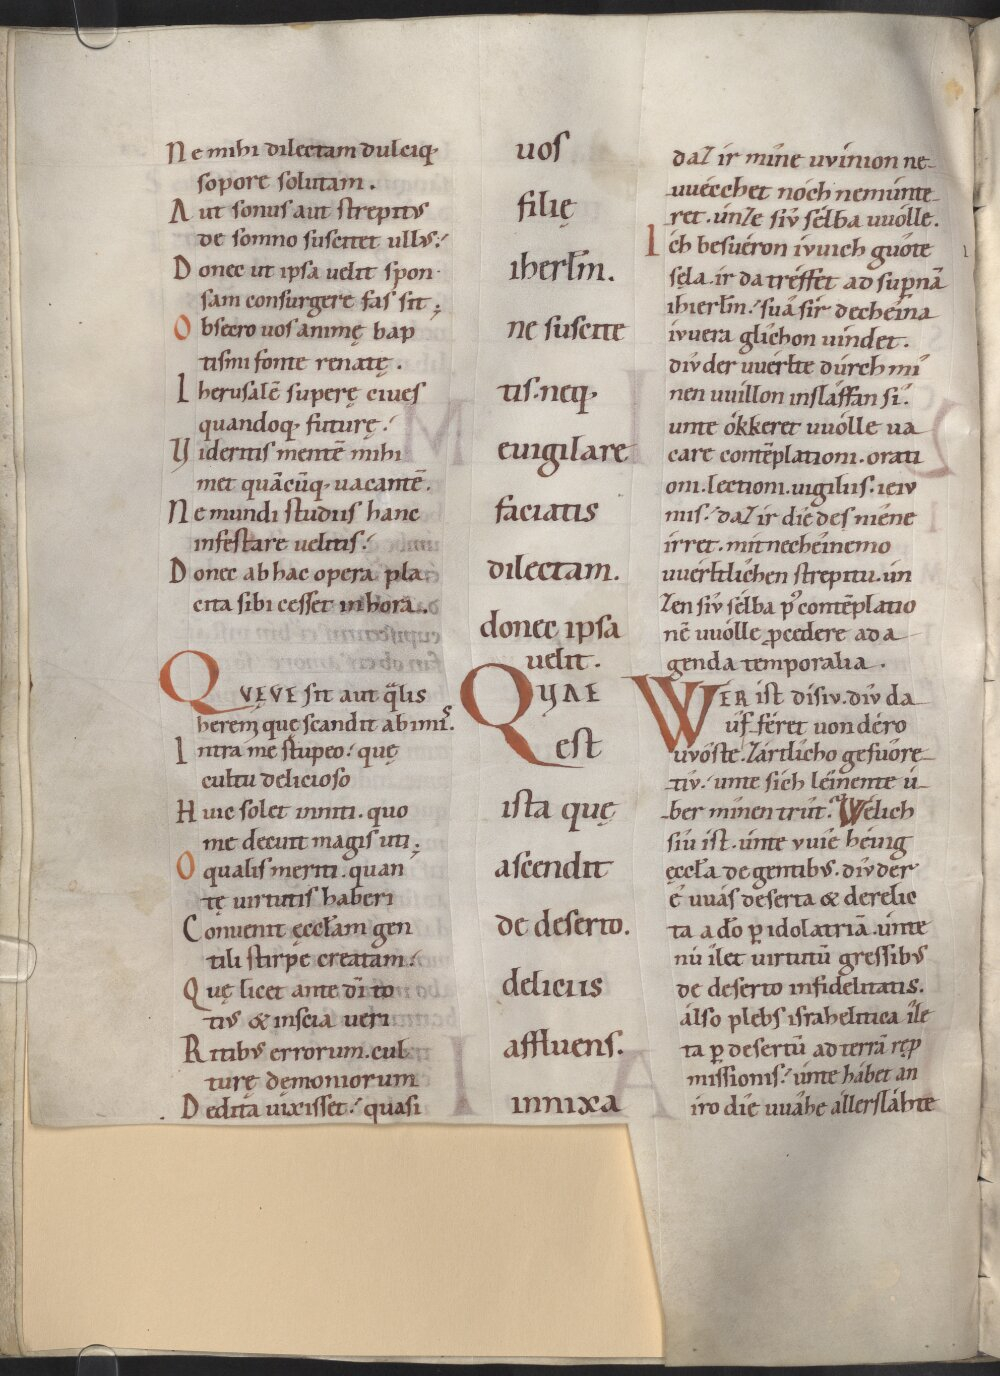 Ne mihi dilectam dulciq;
sopore solutam.
Aut sonus aut strepitus
de somno suscitet ullus;
Donec ut ipsa uelit spon
sam consurgere fas sit;
Obsecro uos animę bap
tismi fonte renatę.
Iherusalē superę ciues
quandoq; futurę.
Videritis mentē mihi
met quācūq; uacantē.
Ne mundi studiis hanc
infestare uelitis.
Donec ab hac opera pla
cita sibi cesset in hora.
QVEVE sit aut q̄lis
herem; que scandit ab imis.
Intra me stupeo. quę
cultu delicioso
Huic solet inniti. quo
me decuit magis uti;
O qualis meriti. quan
tę uirtutis haberi
Conuenit ęccłam gen
tili stirpe creatam.
Quę licet ante dn̄i to
tius & inscia ueri
Ritibus errorum. cul
turę demoniorum
Dedita uixisset. quasi
uos
filię
iherłm.
ne suscite
tis. neq;
euigilare
faciatis
dilectam.
donec ipsa
uelit.
QVAE
est
ista quę
ascendit
de deserto.
deliciis
affluens.
innixa
daz ir míne uvinion ne
uuécchet nóch nemúnte
ret. únze sív sélba uuólle.
Ich besuéron ívuich gvóte
sęla. ir da tréffet ad supnā
ihierłm. suā sír decheína
ivuera glíchon uindet.
dív der uuérłte dúrch mí
nen uuillon insláffan sí.
unte ókkeret uuólle ua
care contēplationi. orati
oni. lectioni. uigiliis. ieiv
niis. daz ir díe des niéne
írret. mit necheínemo
uuérłtlíchen strepitu. ún
zen sív sélba p⁹ contēplatio
nē uuólle ꝓcedere ad a
genda temporalia.
WER ist dísiv. dív da
ûf féret uon déro
uvóste. zártlicho gefuóre
tív. unte sích léinente ú
ber mínen trût. Wélich
síu ist. únte vuíe héuig
ęccła de gentibus. dív der
ê uuás deserta & derelic
ta a dō p idolatriā. únte
nú ílet uirtutū gressibus
de deserto infidelitatis.
álso plebs israhelitica íle
ta p desertū ad terrā rep
missionis. únte hábet an
iro díe uuâhe állerslahte